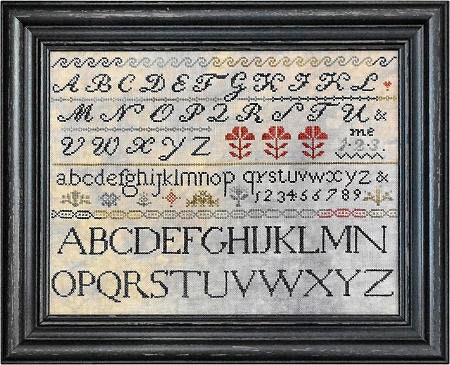 A B C D E F G H I J K L
M N O P Q R S T U &
me
V W X Y Z 1·2·3·
abcdefghijklmnop qrstuvwxyz &
123456789
ABCDEFGHIJKLMN
OPQRSTUVWXYZ